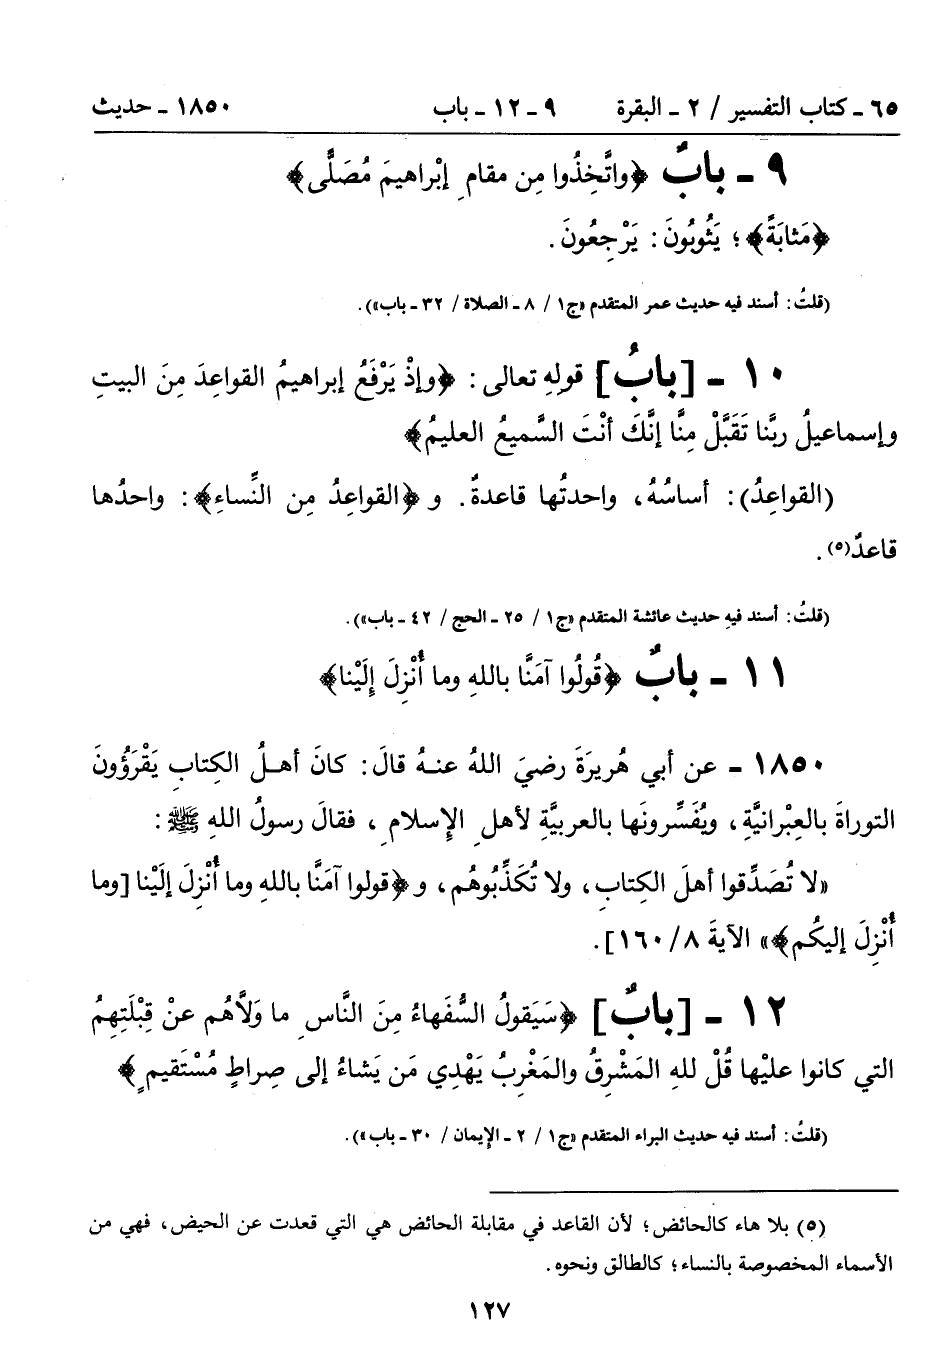 ٦٥ ـ كتاب التفسير / ٢ ـ البقرة ٩ ـ ١٢ ـ باب ١٨٥٠ ـ حديث
٩ ـ بابٌ ﴿واتَّخِذُوا مِن مقامِ إبْراهيمَ مُصَلًّى﴾
﴿مَثابَةً﴾؛ يَثُوبُونَ: يَرْجِعُونَ.
(قلتُ: أسند فيه حديث عمر المتقدم «ج١ / ٨ ـ الصلاة / ٣٢ ـ باب»).
١٠ ـ [بابُ] قولِهِ تعالى: ﴿وإذْ يَرْفَعُ إبراهيمُ القواعِدَ مِنَ البيتِ
وإسماعيلُ ربَّنا تَقَبَّلْ مِنَّا إنَّكَ أنْتَ السَّميعُ العليمُ﴾
(القواعِدُ): أساسُهُ، واحدتُها قاعدةٌ. و﴿القواعدُ مِن النِّساءِ﴾: واحدُها
قاعدٌ(٥).
(قلتُ: أسند فيه حديث عائشة المتقدم «ج١ / ٢٥ ـ الحج / ٤٢ ـ باب»).
١١ ـ بابٌ ﴿قُولُوا آمَنَّا باللهِ وما أُنْزِلَ إِلَيْنا﴾
١٨٥٠ ـ عن أبي هُريرَةَ رضيَ اللهُ عنهُ قالَ: كانَ أهلُ الكِتابِ يَقْرَؤُونَ
التوراةَ بالعِبْرانيَّةِ، ويُفَسِّرونَها بالعربيَّةِ لأهلِ الإسلامِ، فقالَ رسولُ اللهِ ﷺ:
«لا تُصَدِّقوا أهلَ الكتابِ، ولا تُكَذِّبُوهُم، و﴿قولوا آمَنَّا باللهِ وما أُنْزِلَ إلَيْنا [وما
أُنْزِلَ إليكُم﴾» الآيةَ ٨/١٦٠].
١٢ ـ [بابٌ] ﴿سَيَقولُ السُّفَهاءُ مِنَ النَّاسِ ما وَلَّاهُم عنْ قِبْلَتِهِمُ
التي كانوا عليْها قُلْ للهِ المَشْرِقُ والمَغْرِبُ يَهْدِي مَن يَشاءُ إلى صِراطٍ مُسْتَقيمٍ﴾
(قلتُ: أسند فيه حديث البراء المتقدم «ج١ / ٢ ـ الإيمان / ٣٠ ـ باب»).
(٥) بلا هاء كالحائض؛ لأن القاعد في مقابلة الحائض هي التي قعدت عن الحيض، فهي من
الأسماء المخصوصة بالنساء؛ كالطالق ونحوه.
١٢٧